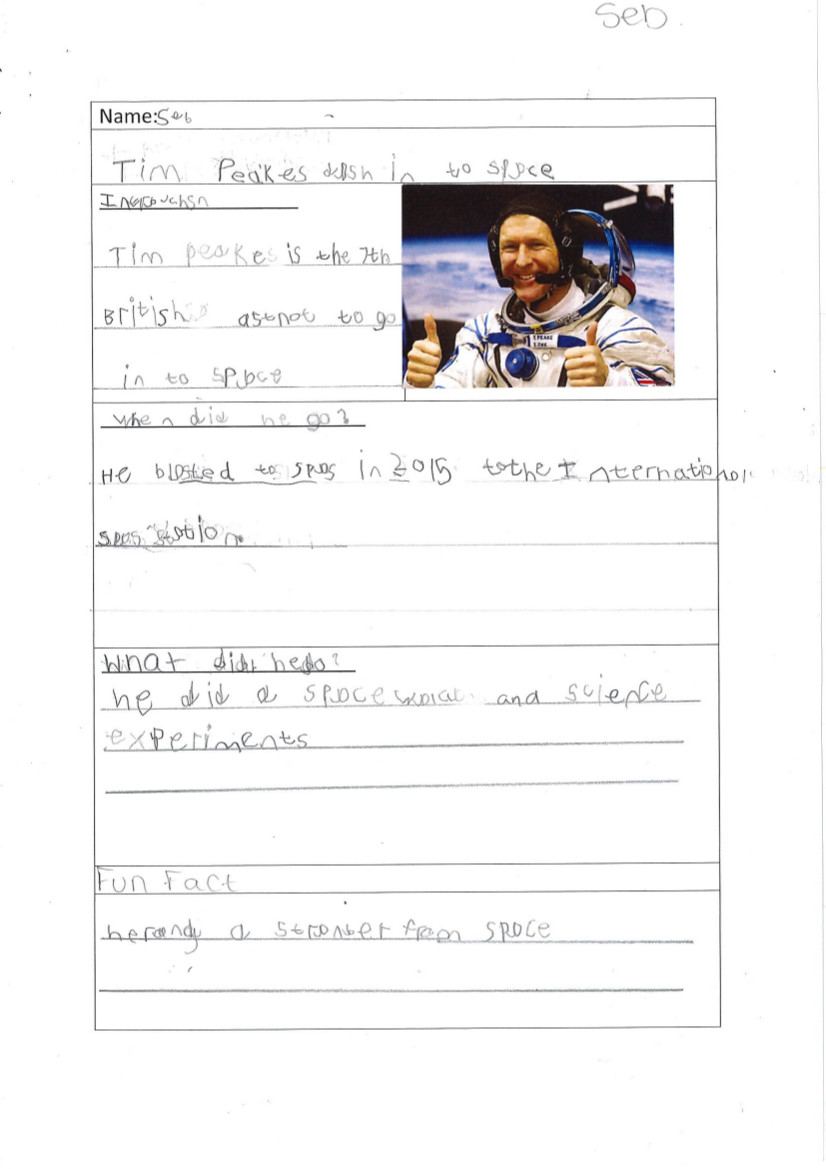 Seb
Name: Seb
Tim Peakes in to space
Tim peakes is the 7th
British astnot to go
in to space
When did he go?
He blasted to spas in 2015 tothe International
spas station
What did hedo?
he did a space and science
experiments
Fun Fact
a from space